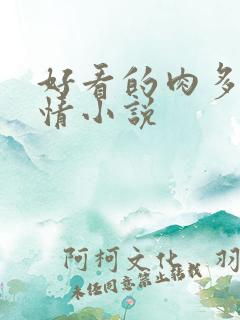 好看的肉多
情小说
阿柯文化 羽
未经同意禁止转载